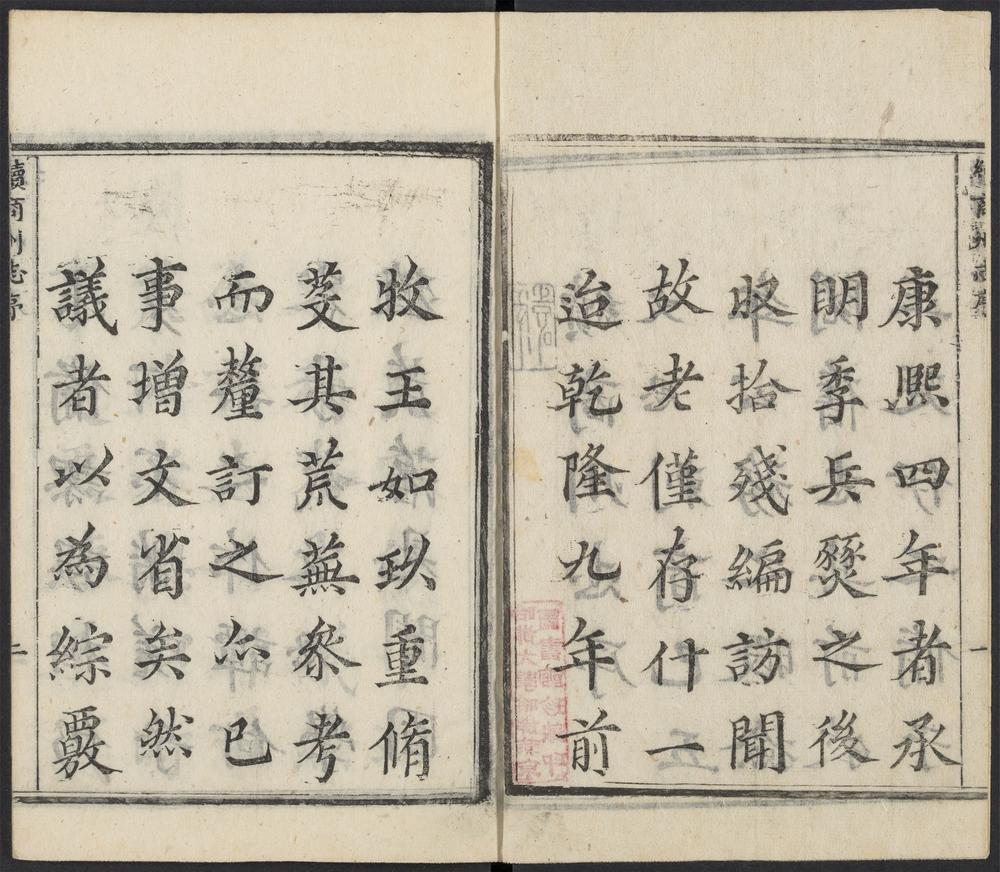 康熙四年者承
明季兵燹之後
收拾殘編訪聞
故老僅存什一
迨乾隆九年前
一
牧王如玖重脩
芟其荒蕪叅考
而釐訂之亦已
事增文省矣然
議者以為綜覈
續商州志序
二